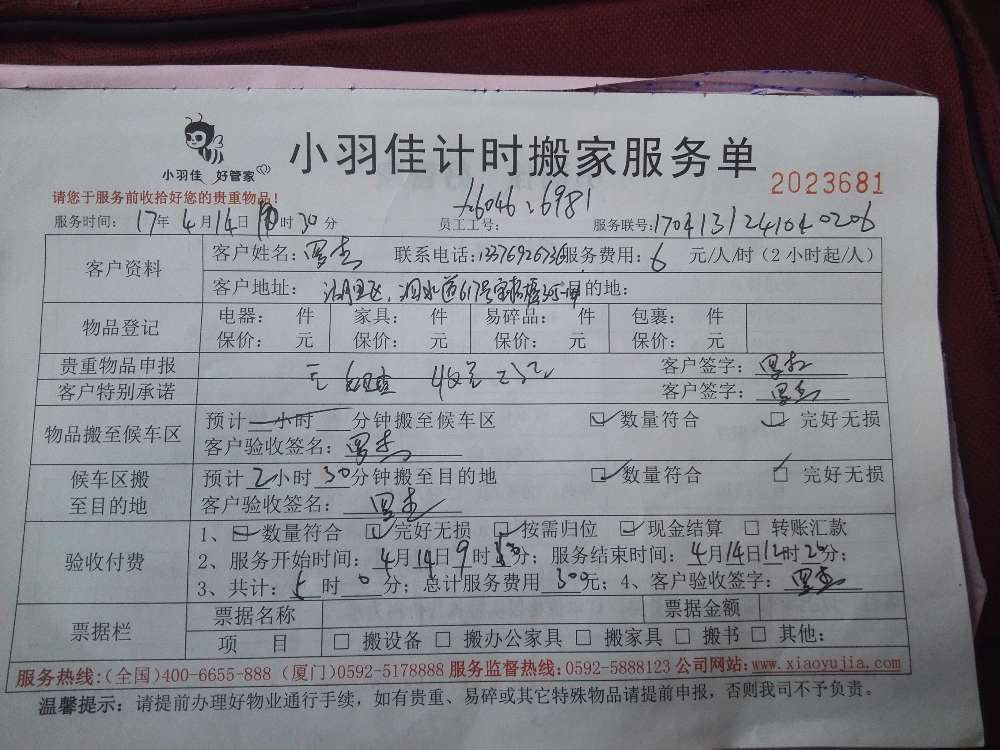 小羽佳 好管家
小羽佳计时搬家服务单
2023681
请您于服务前收拾好您的贵重物品!
服务时间: 17年 4月 14日 时 30分 员工工号: 6046 6981 服务联号:
客户资料
客户姓名: 罗杰 联系电话: 服务费用: 6 元/人/时 (2 小时起/人)
客户地址: 目的地:
物品登记
电器: 件 家具: 件 易碎品: 件 包裹: 件
保价: 元 保价: 元 保价: 元 保价: 元
贵重物品申报 无 客户签字: 罗杰
客户特别承诺 客户签字: 罗杰
物品搬至候车区
预计 小时 分钟搬至候车区 数量符合 完好无损
客户验收签名: 罗杰
候车区搬至目的地
预计 2小时 30分钟搬至目的地 数量符合 完好无损
客户验收签名: 罗杰
验收付费
1、 数量符合 完好无损 按需归位 现金结算 转账汇款
2、服务开始时间: 4月 14日 9时 分; 服务结束时间: 4月 14日 12时 20分;
3、共计: 时 0分; 总计服务费用 300元; 4、客户验收签字: 罗杰
票据栏
票据名称 票据金额
项 目 搬设备 搬办公家具 搬家具 搬书 其他:
服务热线:(全国)400-6655-888 (厦门)0592-5178888 服务监督热线:0592-5888123 公司网站:www.xiaoyujia.com
温馨提示: 请提前办理好物业通行手续, 如有贵重、易碎或其它特殊物品请提前申报, 否则我司不予负责。